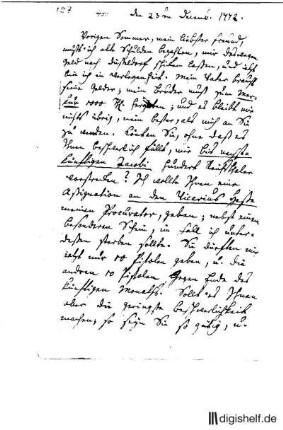 127
den 23 ten Decemb. 1772.
Vorigen Sommer, mein liebster Freund,
mußt ich alle Schulden bezahlen, mir das
Geld nach Düsseldorf schicken lassen, und itzt
bin ich in Verlegenheit. Mein Vater braucht
seine Gelder, mein Bruder muß zum
1000 und es bleibt mir
nichts übrig, mein bester, als mich an Sie
zu wenden. Könten Sie, ohne daß es
Ihnen beschwerlich fällt, mir bis nächst-
künftigen Jacobi hundert Reichsthaler
vorstrecken? Ich wollte Ihnen eine
Assignation an den Vicarius
meinen Procurator, geben; nebst einem
besonderen Schein, im Fall ich
dessen sterben sollte. Sie dürften mir
itzt nur 10 Pistolen geben, u. die
andern 10 Pistolen gegen Ende des
künftigen Monaths. Sollt es Ihnen
aber die geringste Beschwerlichkeit
machen, so seyn Sie so gütig, u.
digishelf.de